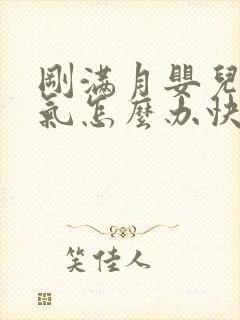 剛滿月嬰兒
氣怎麼办快
笑佳人